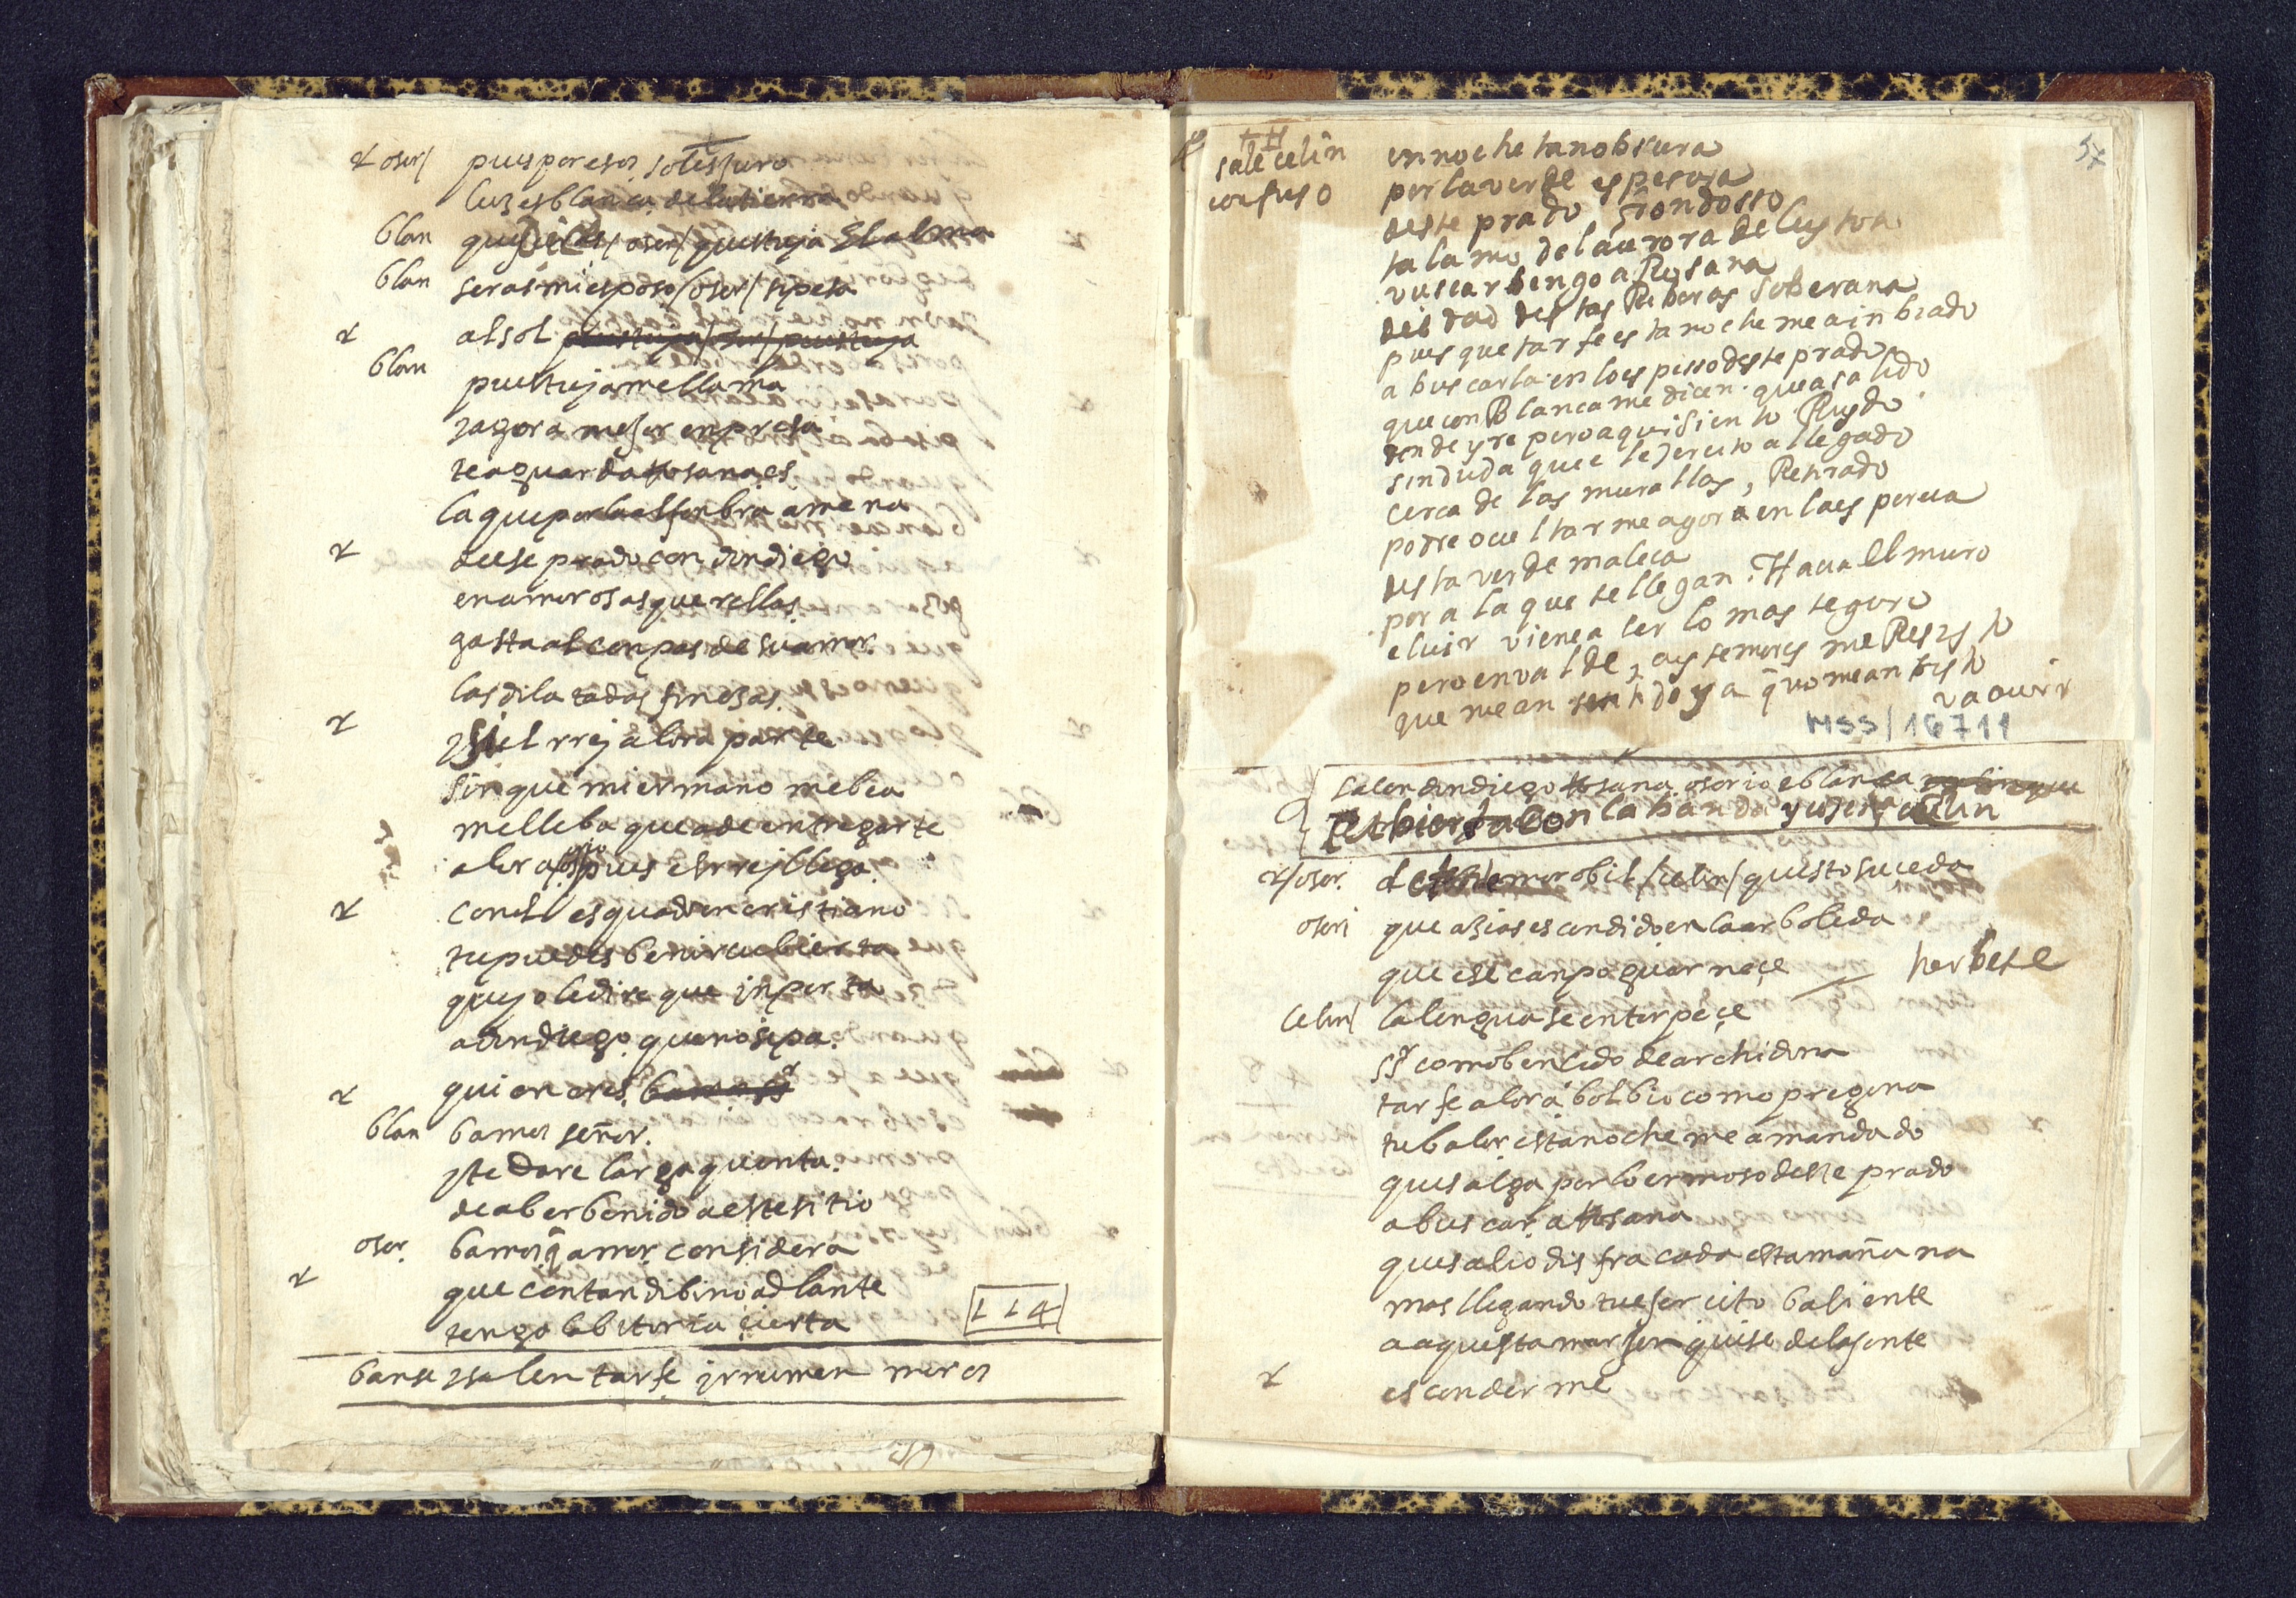 osor/ pues por esos soles juro
luz es blanca de la tierra
blan que dices /oser/ questuya El alma
blan seras mi esposo /oser/ si pesa
al sol
blan pues tuya me llama
y agora mejor enpresa
te aguarda Rosana es
la que por la alfonbra amena
de ese prado con don diego
enamorosas querellas
gasta al conpas de su amor
las dilatadas finezas
y si el rrey alora parte
sin que mi ermano me bea
me lleba que a de entregarte
alora /osorio/ pues el rrey llega
con el esquadron cristiano
tu puedes benir cubierta
que yo le dire que inporta
a don diego que no sepa
quien eres
blan bamos señor
y te dare larga quenta
de aber benido a este sitio
osor. bamos q̃ amor considera
que con tan dibino adlante
tengo la bitoria cierta
114
banse y salen tarfe y rrumen moros
sale celin confuso
en noche tan obscura
por la verde espesura
deste prado frondosso
talamo del aurora
vuscar bengo a Rosana
deidad destas Riberas soberana
pues que tarfe esta noche me a inbiado
a buscarla en lo espesso deste prado
que con Blanca me dicen que a salido
donde yre pero aqui siento Ruydo
sin duda que el ejercito a llegado
cerca de las murallas, Retirado
podre ocultarme agora en la espereca
desta verde maleca
por a la que se llegan. Hacia El muro
el uir viene a ser lo mas seguro
pero en valde, a
que me an sentido ya q̃ no me an bisto
va a uir
MSS/16711
salen don diego Rosana osorio e blanca
Rebierta con la banda y celin
osor. detente morobil /celin/ questo suceda
osori que azias escondido en la arboleda
que ese canpo guarneçe
her bese
Celin/ la lengua se entorpeçe
sr como bencido de archidona
tarfe a lora bolbio como pregona
tu balor esta noche me a mandado
que salga por lo ermoso deste prado
a buscar a Rosana
que salio disfracada esta mañana
mas llegando tu ejercito baliente
a aquesta marjen quise de la jente
esconderme